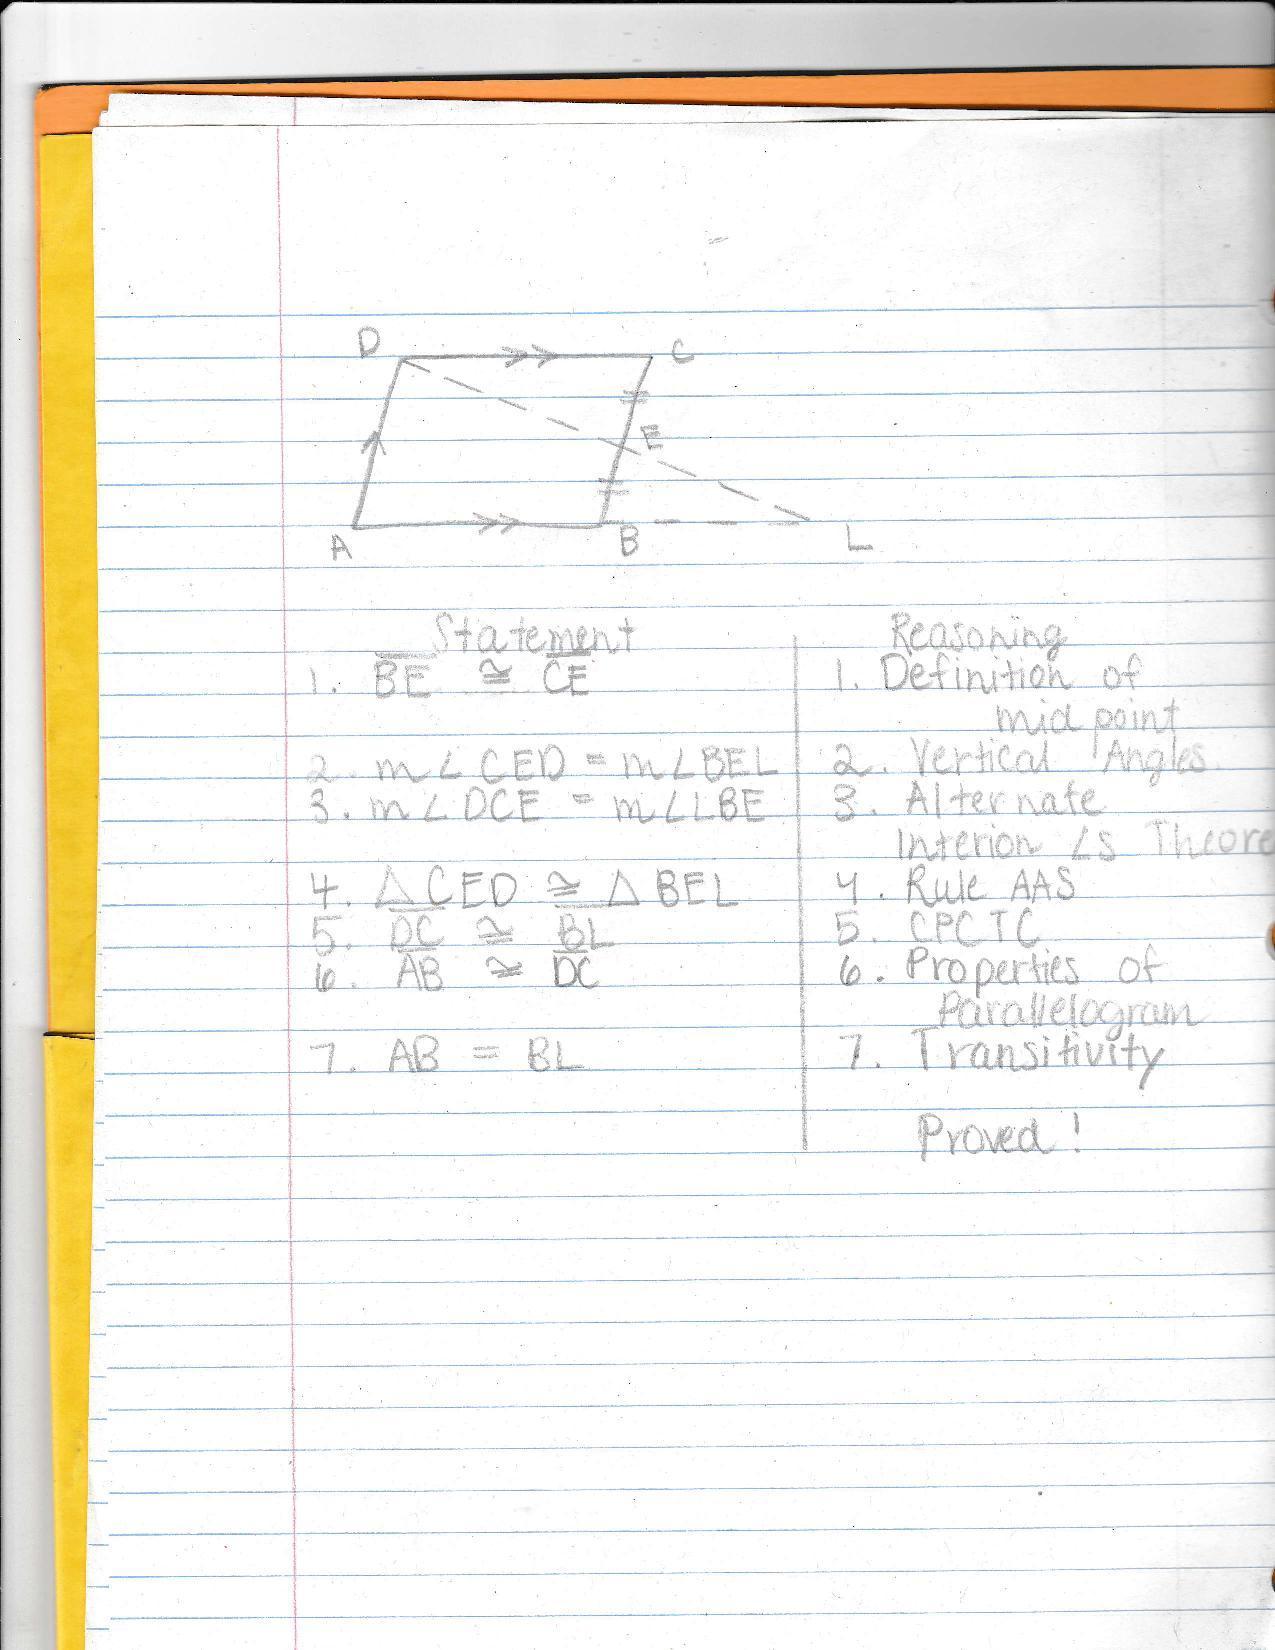 D
C
E
A
B
L
Statement
Reasoning
1. BE ≅ CE
1. Definition of
midpoint
2. m∠CED = m∠BEL
2. Vertical Angles.
3. m∠DCE = m∠LBE
3. Alternate
Interion ∠s Theore
4. △CED ≅ △BEL
4. Rule AAS
5. DC ≅ BL
5. CPCTC
6. AB ≅ DC
6. Properties of
Parallelogram
7. AB = BL
7. Transitivity
Proved!